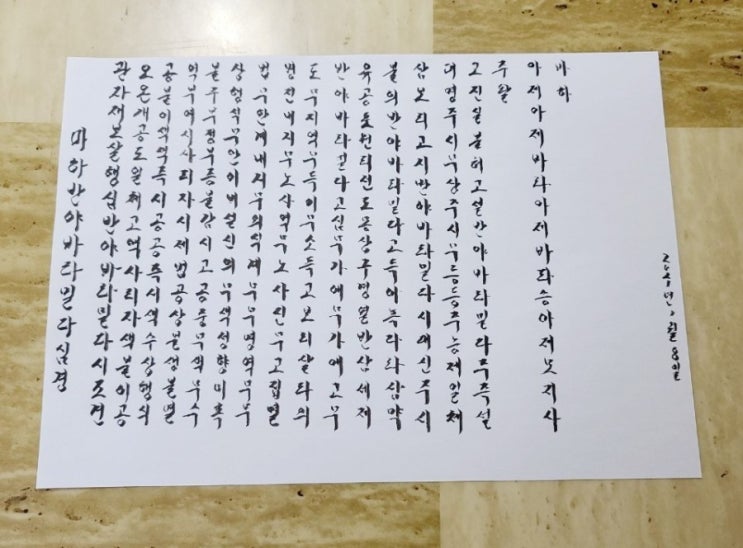 마하반야바라밀다심경
관자재보살행심반야바라밀다시조견
오온개공도일체고액사리자색불이공
공불이색색즉시공공즉시색수상행식
역부여시사리자시제법공상불생불멸
불구부정부증불감시고공중무색무수
상행식무안이비설신의무색성향미촉
법무안계내지무의식계무무명역무무
명진내지무노사역무노사진무고집멸
도무지역무득이무소득고보리살타의
반야바라밀다고심무가애무가애고무
유공포원리전도몽상구경열반삼세제
불의반야바라밀다고득아뇩다라삼먁
삼보리고지반야바라밀다시대신주시
대명주시무상주시무등등주능제일체
고진실불허고설반야바라밀다주즉설
주왈
아제아제바라아제바라승아제모지사
바하
8일